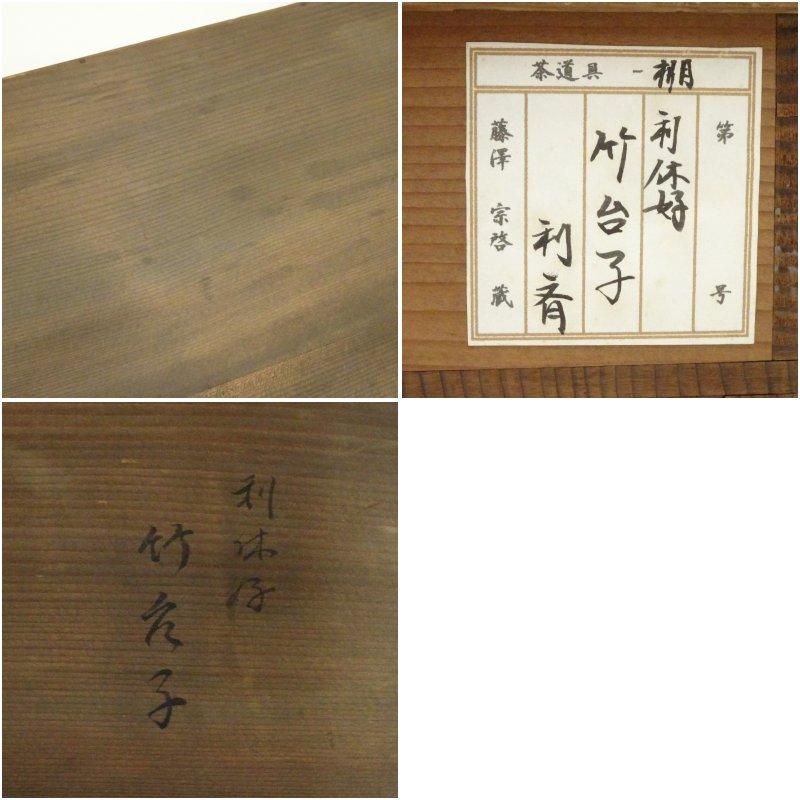 茶道具 一 棚
第 号
利休好
竹台子
利斎
藤澤 宗啓 蔵
利休好
竹台子